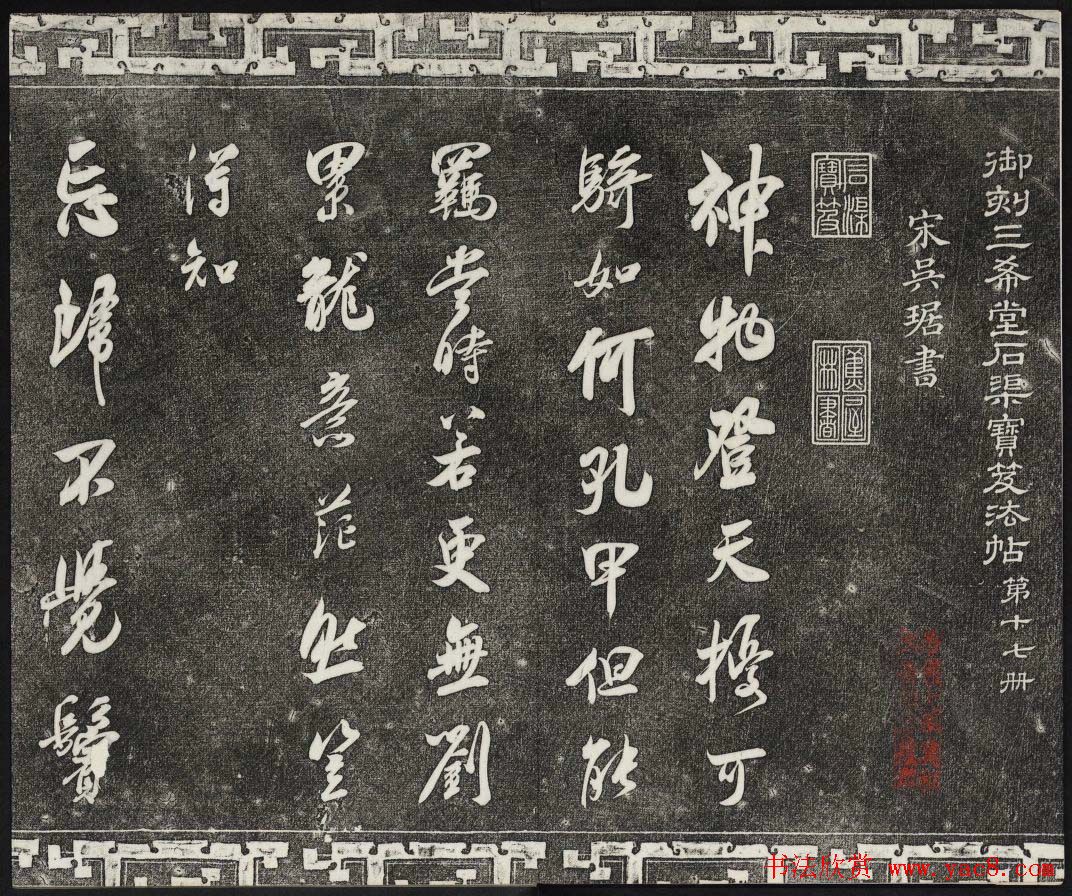 御刻三希堂石渠寶笈法帖第十七册
宋吳琚書
石渠
寶笈
神物登天擾可
騎如何孔甲但能
羈當時若更無劉
累龍意茫然豈
得知
忘歸不覺鬢
书法欣赏 www.yac8.com